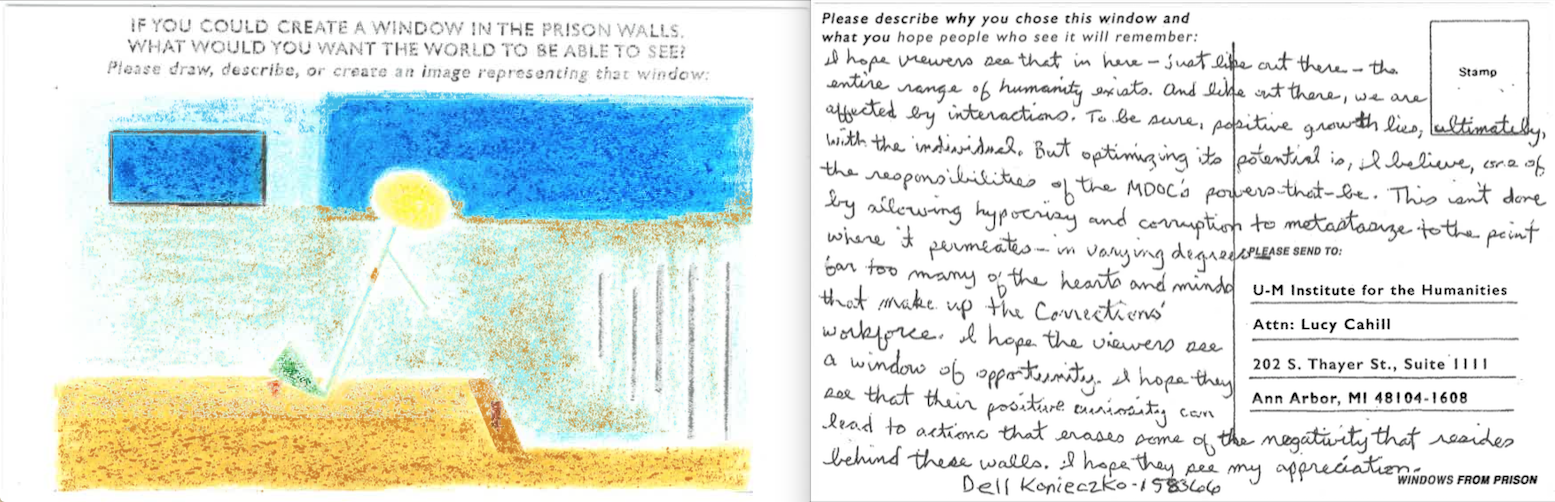 IF YOU COULD CREATE A WINDOW IN THE PRISON WALLS,
WHAT WOULD YOU WANT THE WORLD TO BE ABLE TO SEE?
Please draw, describe, or create an image representing that window:
Please describe why you chose this window and
what you hope people who see it will remember:
I hope viewers see that in here – just like out there – the
entire range of humanity exists. And like out there, we are
affected by interactions. To be sure, positive growth lies, ultimately,
with the individual. But optimizing its potential is, I believe, one of
the responsibilities of the MDOC's powers-that-be. This isn't done
by allowing hypocrisy and corruption to metastasize to the point
where it permeates – in varying degrees
far too many of the hearts and minds
that make up the Corrections'
workforce. I hope the viewers see
a window of opportunity. I hope they
see that their positive curiosity can
lead to actions that erases some of the negativity that resides
behind these walls. I hope they see my appreciation.
Dell Konieczko - 158366
Stamp
PLEASE SEND TO:
U-M Institute for the Humanities
Attn: Lucy Cahill
202 S. Thayer St., Suite 1111
Ann Arbor, MI 48104-1608
WINDOWS FROM PRISON